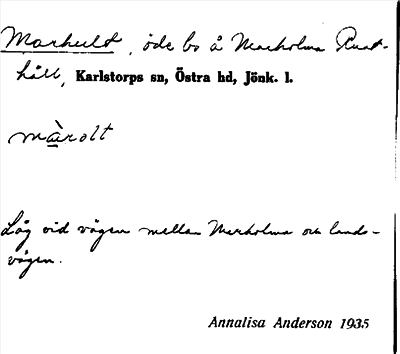 Markult, öde bo å Marholma Rust-
håll, Karlstorps sn, Östra hd, Jönk. l.
màrolt
Låg vid vägen mellan Marholma och lands-
vägen.
Annalisa Anderson 1935